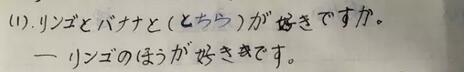 (1). リンゴとバナナと(どちら)が好きですか。
― リンゴのほうが好きです。